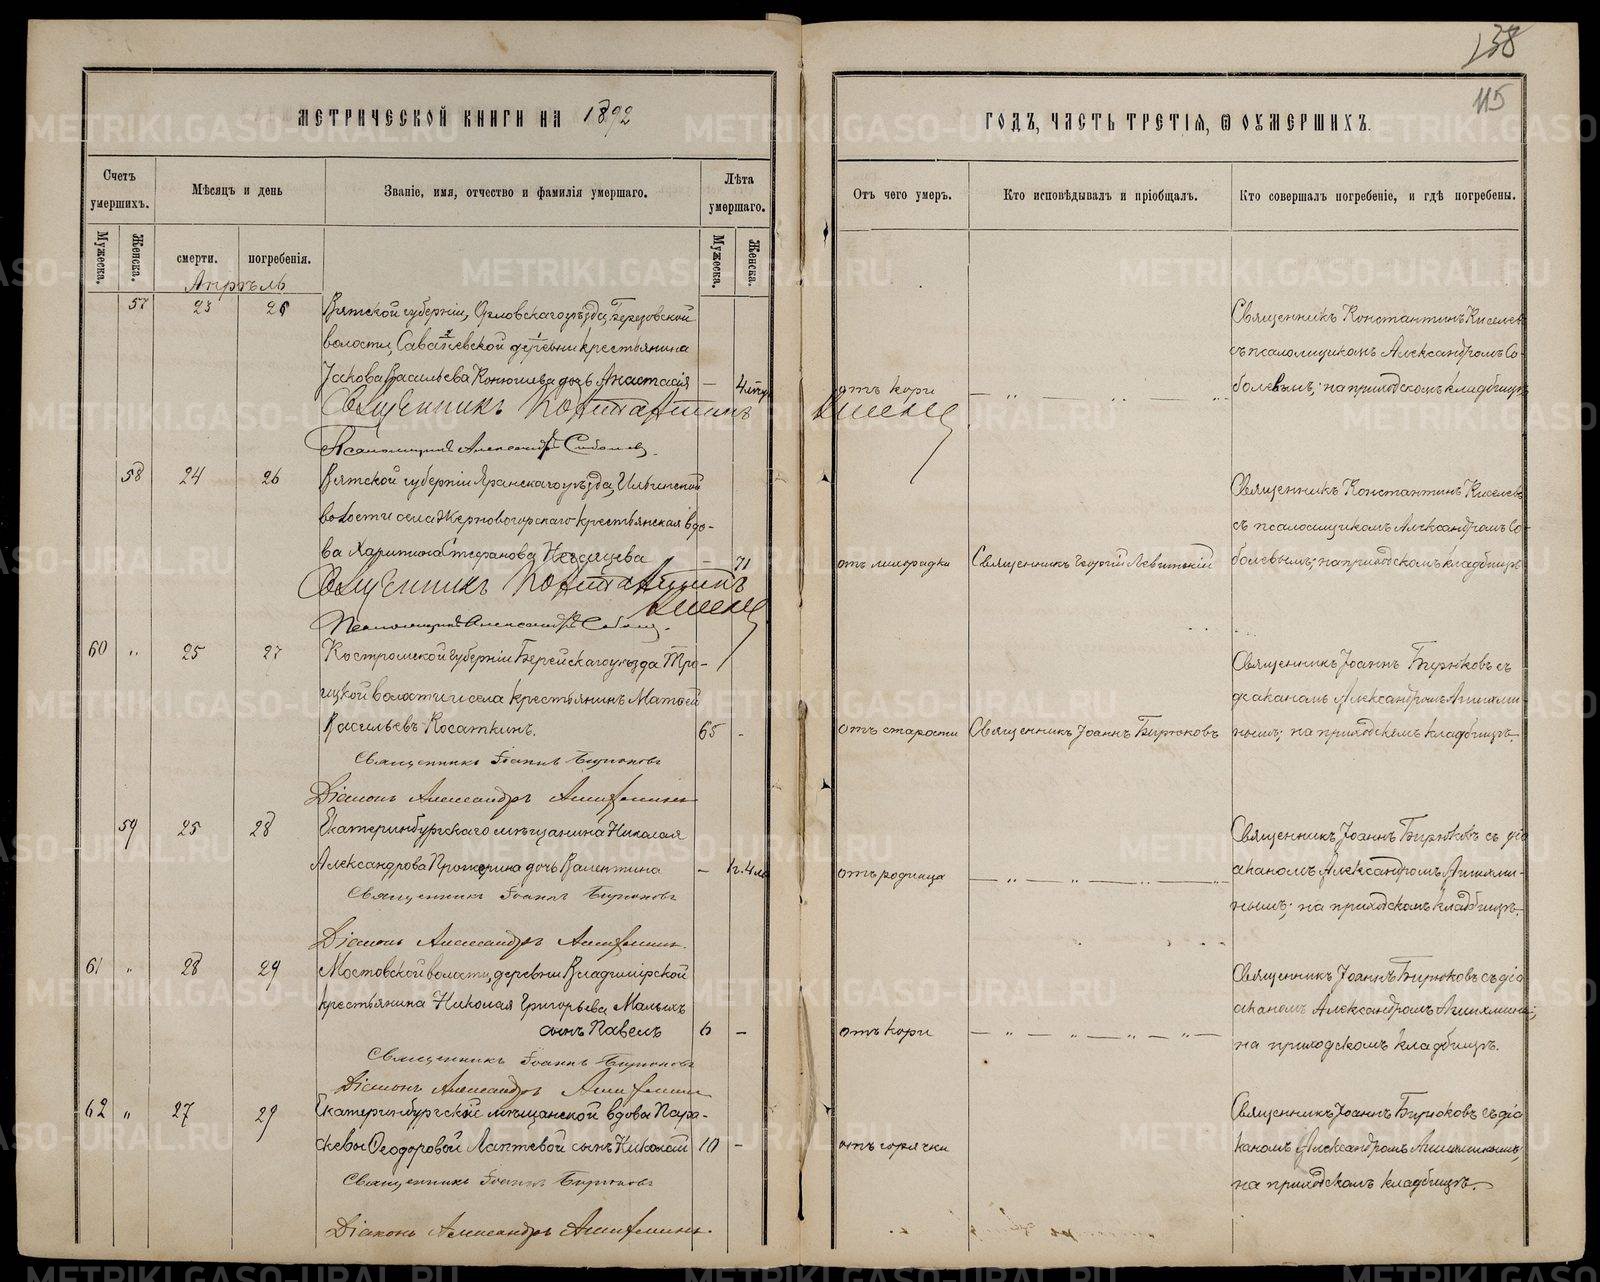 138
115
МЕТРИЧЕСКОЙ КНИГИ НА 1892
ГОДЪ, ЧАСТЬ ТРЕТІЯ, Ѿ ОУМЕРШИХЪ.
Счетъ умершихъ.
Мѣсяцъ и день
Званіе, имя, отчество и фамилія умершаго.
Лѣта умершаго.
Отъ чего умеръ.
Кто исповѣдывалъ и пріобщалъ.
Кто совершалъ погребеніе, и гдѣ погребены.
Мужеска.
Женска.
смерти.
погребенія.
Мужеска.
Женска.
Апрѣль
57 23 26
Вятской губерніи, Орловскаго уѣзда, Березовской
волости, деревни крестьянина
Іакова Васильева дочь Анастасія — 4
отъ кори
Священникъ Константинъ Киселевъ
съ псаломщикомъ Александромъ Со-
болевымъ; на приходскомъ кладбищѣ
Священникъ Константинъ Киселев
Псаломщикъ Александръ Соболев.
58 24 26
Вятской губерніи Яранскаго уѣзда, Ильинской
волости села крестьянская вдо-
ва Харитина Стефанова — 71
отъ лихорадки
Священникъ Георгій Левитскій
Священникъ Константинъ Киселевъ
съ псаломщикомъ Александромъ Со-
болевымъ; на приходскомъ кладбищѣ
Священникъ Константинъ Киселев
Псаломщикъ Александръ Соболев.
60 „ 25 27
Костромской губерніи уѣзда Тро-
ицкой волости и села крестьянинъ Матѳей
Васильевъ Косаткинъ. 65 -
отъ старости
Священникъ Іоаннъ Бирюковъ
Священникъ Іоаннъ Бирюковъ съ
діакономъ Александромъ
нымъ; на приходскомъ кладбищѣ.
Священникъ Іоаннъ Бирюковъ
Діаконъ Александръ
59 25 28
Екатеринбургскаго мѣщанина Николая
Александрова дочь Валентина — 1г. 4м
отъ родимца
Священникъ Іоаннъ Бирюковъ съ діа
кономъ Александромъ
нымъ; на приходскомъ кладбищѣ.
Священникъ Іоаннъ Бирюковъ
Діаконъ Александръ
61 „ 28 29
Мостовской волости, деревни Владимірской
крестьянина Николая Григорьева Малыхъ
сынъ Павелъ 6 —
отъ кори
Священникъ Іоаннъ Бирюковъ съ діа
кономъ Александромъ
на приходскомъ кладбищѣ.
Священникъ Іоаннъ Бирюковъ
Діаконъ Александръ
62 „ 27 29
Екатеринбургской мѣщанской вдовы Пара-
скевы Ѳеодоровой Лаптевой сынъ Николай 10 -
отъ горячки
Священникъ Іоаннъ Бирюковъ съ діа
кономъ Александромъ
на приходскомъ кладбищѣ.
Священникъ Іоаннъ Бирюковъ
Діаконъ Александръ
METRIKI.GASO-URAL.RU